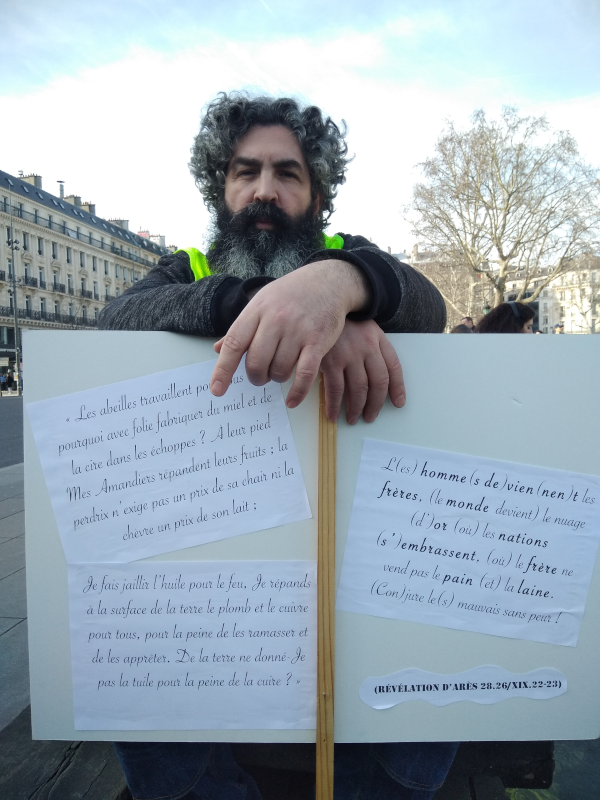 « Les abeilles travaillent pour
pourquoi avec folie fabriquer du miel et de
la cire dans les échoppes ? A leur pied
Mes Amandiers répandent leurs fruits ; la
perdrix n'exige pas un prix de sa chair ni la
chèvre un prix de son lait ;
Je fais jaillir l'huile pour le feu, Je répands
à la surface de la terre le plomb et le cuivre
pour tous, pour la peine de les ramasser et
de les apprêter. De la terre ne donné-Je
pas la tuile pour la peine de la cuire ? »
L(es) homme(s de)vien(nen)t les
frères, (le monde devient) le nuage
(d')or (où) les nations
(s')embrassent, (où) le frère ne
vend pas le pain (et) la laine.
(Con)jure le(s) mauvais sans peur !
(RÉVÉLATION D'ARÈS 28.26/XIX.22-23)